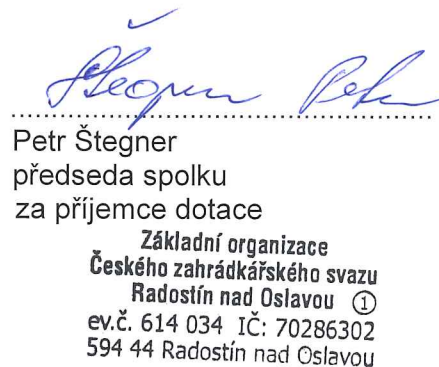 Štegner Petr
........................................................
Petr Štegner
předseda spolku
za příjemce dotace
Základní organizace
Českého zahrádkářského svazu
Radostín nad Oslavou ①
ev.č. 614 034 IČ: 70286302
594 44 Radostín nad Oslavou